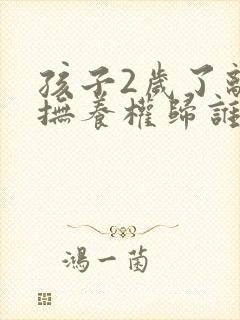 孩子2歲了離
撫養權歸誰
鴻一菌